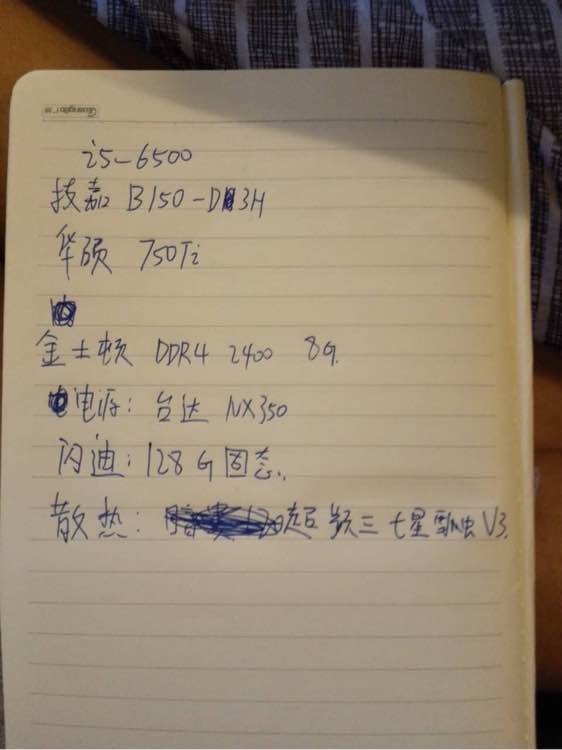 i5-6500
技嘉 B150-D3H
华硕 750Ti
金士顿 DDR4 2400 8G.
电源: 台达 NX350
闪迪: 128G 固态.
散热: 超频三 七星瓢虫 V3.